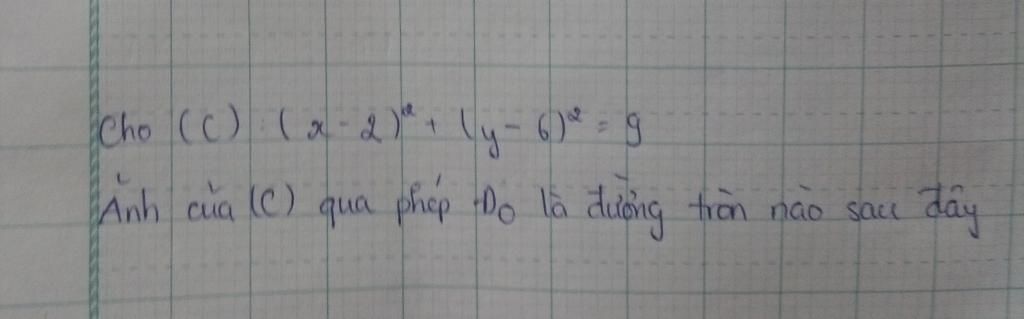 Cho (C): (x - 2)² + (y - 6)² = 9
Ảnh của (C) qua phép Đ₀ là đường tròn nào sau đây